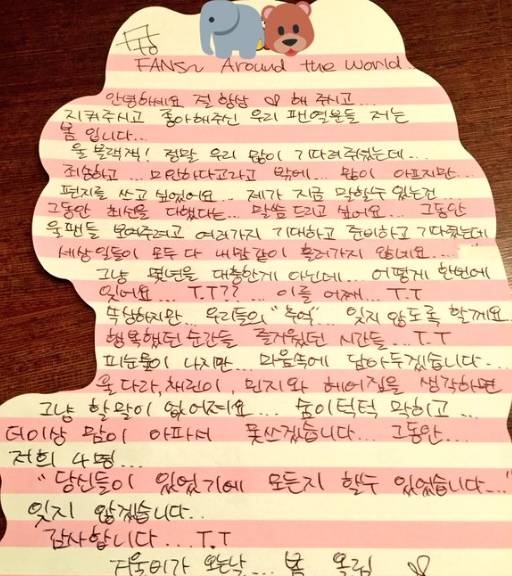 FANS~ Around the World..
안녕하세요 절 항상 ♡ 해 주시고...
지켜주시고 좋아해주신 우리 팬열분들 저는
봄 입니다...
울 블랙잭! 정말 우리 많이 기다려주셨는데...
죄송하고... 미안하다고라고 밖에... 많이 아프지만...
편지를 쓰고 싶었어요... 제가 지금 말할수 있는건
그동안 최선을 다했다는... 말씀 드리고 싶어요... 그동안
울 팬들 보여주려고 여러가지 기대하고 준비하고 기다렸는데
세상일들이 모두 다 내맘같이 흘러가지 않네요...
그냥 몇년을 대충한게 아닌데... 어떻게 한번에
잊어요... T.T?? ... 이를 어째... T.T
속상하지만... 우리들의 "추억"... 잊지 않도록 할께요..
행복했던 순간들 즐거웠던 시간들... T.T
피눈물이 나지만... 마음속에 담아두겠습니다...
울 다라, 채린이, 민지와 헤어짐을 생각하면
그냥 할말이 없어져요... 숨이턱턱 막히고...
더이상 맘이 아파서 못쓰겠습니다... 그동안...
저희 4명...
"당신들이 있었기에 모든지 할수 있었습니다..."
잊지 않겠습니다..
감사합니다... T.T
겨울비가 오는날... 봄 올림 ♡